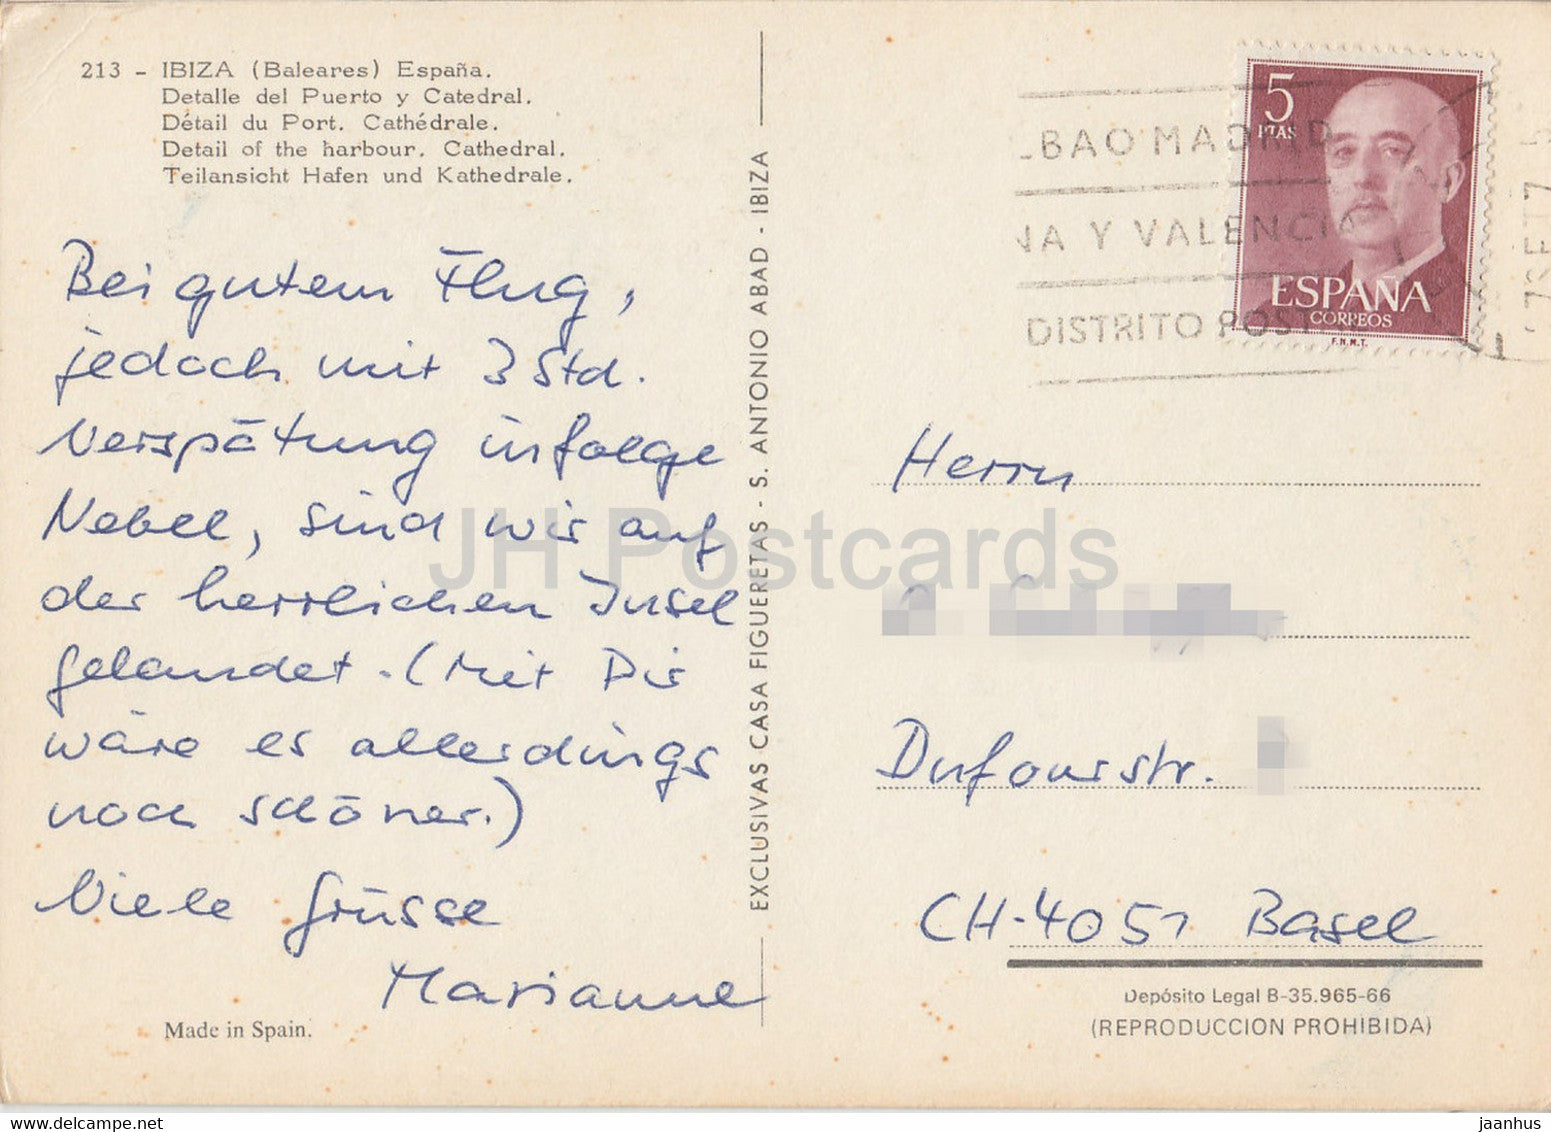 213 - IBIZA (Baleares) España.
Detalle del Puerto y Catedral.
Détail du Port. Cathédrale.
Detail of the harbour. Cathedral.
Teilansicht Hafen und Kathedrale.
Bei gutem Flug,
jedoch mit 3 Std.
Verspätung infolge
Nebel, sind wir auf
der herrlichen Insel
gelandet. (Mit Dir
wäre es allerdings
noch schöner.)
Viele Grüsse
Marianne
Made in Spain.
EXCLUSIVAS CASA FIGUERETAS - S. ANTONIO ABAD - IBIZA
5
PTAS
ESPAÑA
CORREOS
F.N.M.T.
BAO MADRID
NA Y VALENCIA
DISTRITO POST
Herrn
Dufourstr.
CH-4051 Basel
Depósito Legal B-35.965-66
(REPRODUCCION PROHIBIDA)
JH Postcards
hippostcard.com
jaanhus